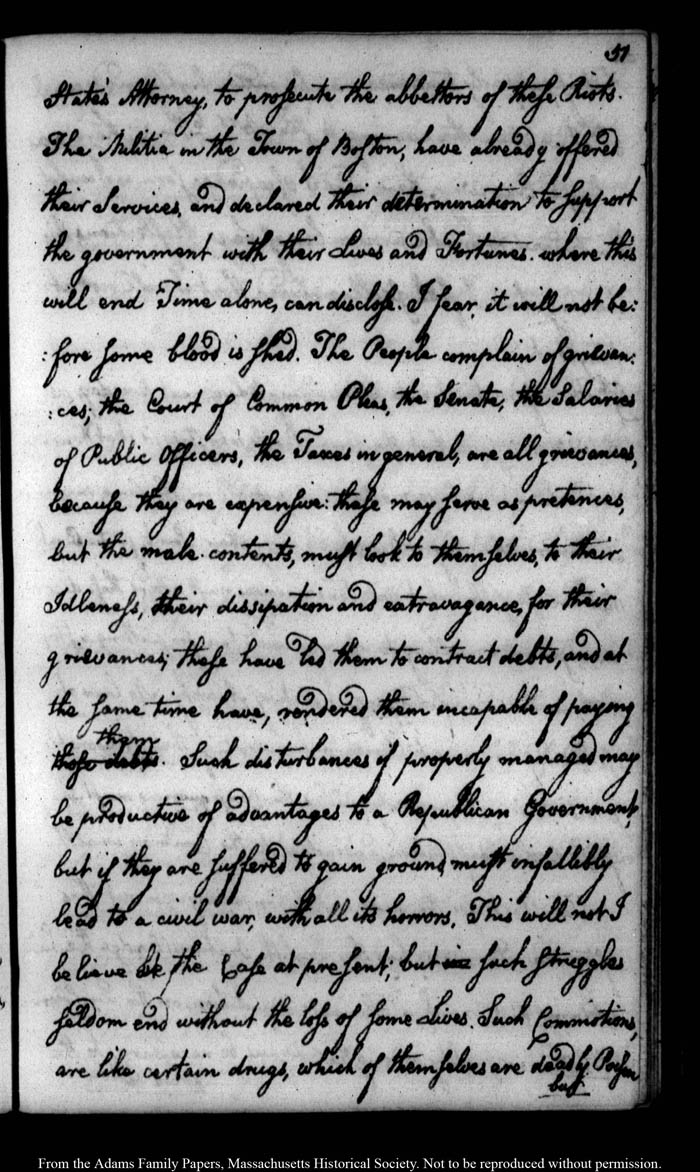 51
State's Attorney, to prosecute the abbettors of these Riots.
The Militia in the Town of Boston, have already offered
their Services, and declared their determination to support
the government with their Lives and Fortunes. where this
will end Time alone, can disclose. I fear, it will not be:
:fore some blood is shed. The People complain of grievan:
:ces; the Court of Common Pleas, the Senate, the Salaries
of Public Officers, the Taxes in general, are all grievances,
because they are expensive: these may serve as pretences,
but the male-contents, must look to themselves, to their
Idleness, their dissipation and extravagance, for their
grievances; these have led them to contract debts, and at
the same time have, rendered them incapable of paying
them
those debts. Such disturbances if properly managed may
be productive of advantages to a Republican Government,
but if they are suffered to gain ground, must infallibly
lead to a civil war, with all its horrors. This will not I
believe be the Case at present; but in such struggles
seldom end without the loss of some Lives. Such Commotions,
are like certain drugs, which of themselves are deadly Poison
but
From the Adams Family Papers, Massachusetts Historical Society. Not to be reproduced without permission.